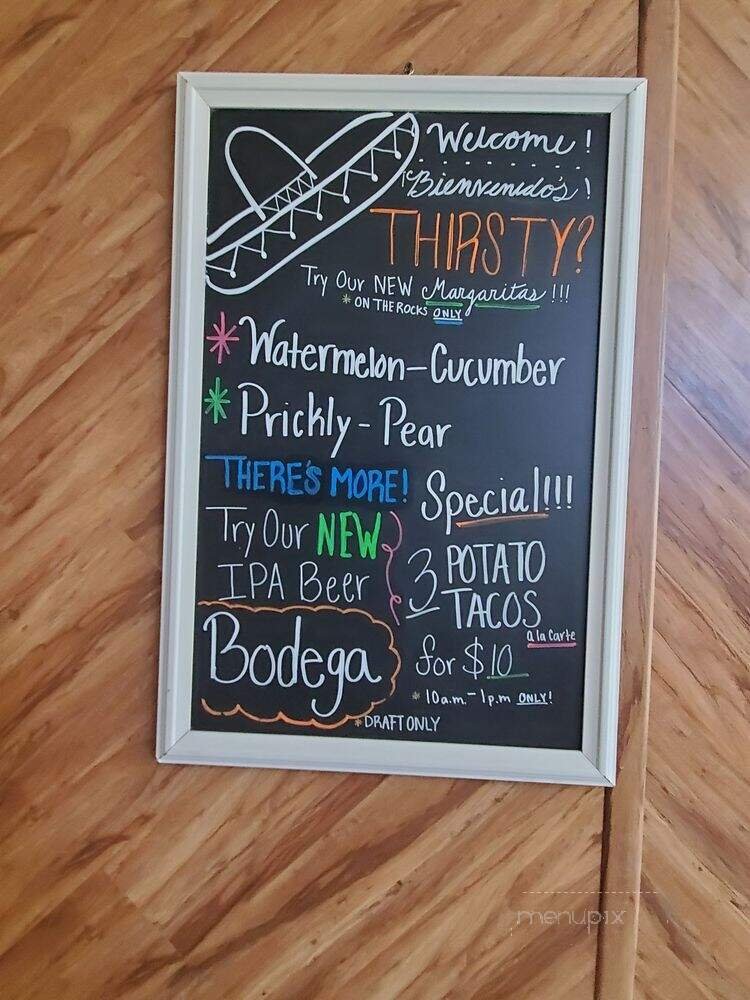 Welcome!
¡Bienvenido's!
THIRSTY?
Try Our NEW Margaritas!!!
* ON THE ROCKS ONLY
* Watermelon-Cucumber
* Prickly-Pear
THERE'S MORE!
Try Our NEW
IPA Beer
Bodega
* DRAFT ONLY
Special!!!
3 POTATO
TACOS
a la carte
for $10
* 10a.m.-1p.m ONLY!
menupix